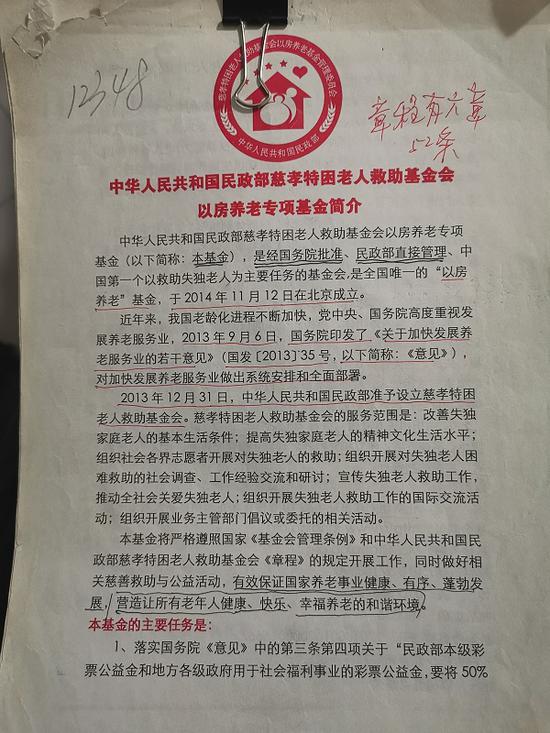 12348
慈孝特困老人救助基金会以房养老基金管理委员会
中华人民共和国民政部
章程有六章
52条
中华人民共和国民政部慈孝特困老人救助基金会
以房养老专项基金简介
中华人民共和国民政部慈孝特困老人救助基金会以房养老专项
基金（以下简称：本基金），是经国务院批准、民政部直接管理、中
国第一个以救助失独老人为主要任务的基金会,是全国唯一的“以房
养老”基金，于2014年11月12日在北京成立。
近年来，我国老龄化进程不断加快，党中央、国务院高度重视发
展养老服务业，2013年9月6日，国务院印发了《关于加快发展养
老服务业的若干意见》（国发［2013］35号，以下简称：《意见》），
对加快发展养老服务业做出系统安排和全面部署。
2013年12月31日，中华人民共和国民政部准予设立慈孝特困
老人救助基金会。慈孝特困老人救助基金会的服务范围是：改善失独
家庭老人的基本生活条件；提高失独家庭老人的精神文化生活水平；
组织社会各界志愿者开展对失独老人的救助；组织开展对失独老人困
难救助的社会调查、工作经验交流和研讨；宣传失独老人救助工作，
推动全社会关爱失独老人；组织开展失独老人救助工作的国际交流活
动；组织开展业务主管部门倡议或委托的相关活动。
本基金将严格遵照国家《基金会管理条例》和中华人民共和国民
政部慈孝特困老人救助基金会《章程》的规定开展工作，同时做好相
关慈善救助与公益活动，有效保证国家养老事业健康、有序、蓬勃发
展，营造让所有老年人健康、快乐、幸福养老的和谐环境。
本基金的主要任务是：
1、落实国务院《意见》中的第三条第四项关于“民政部本级彩
票公益金和地方各级政府用于社会福利事业的彩票公益金,要将50%